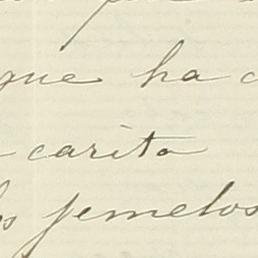 que ha
carito
gemelos